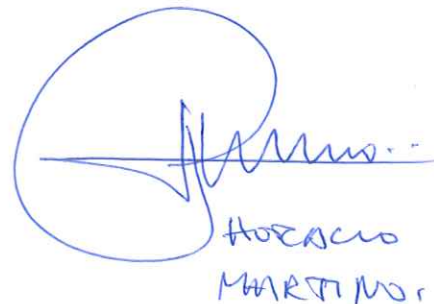 HORACIO
MARTINO.